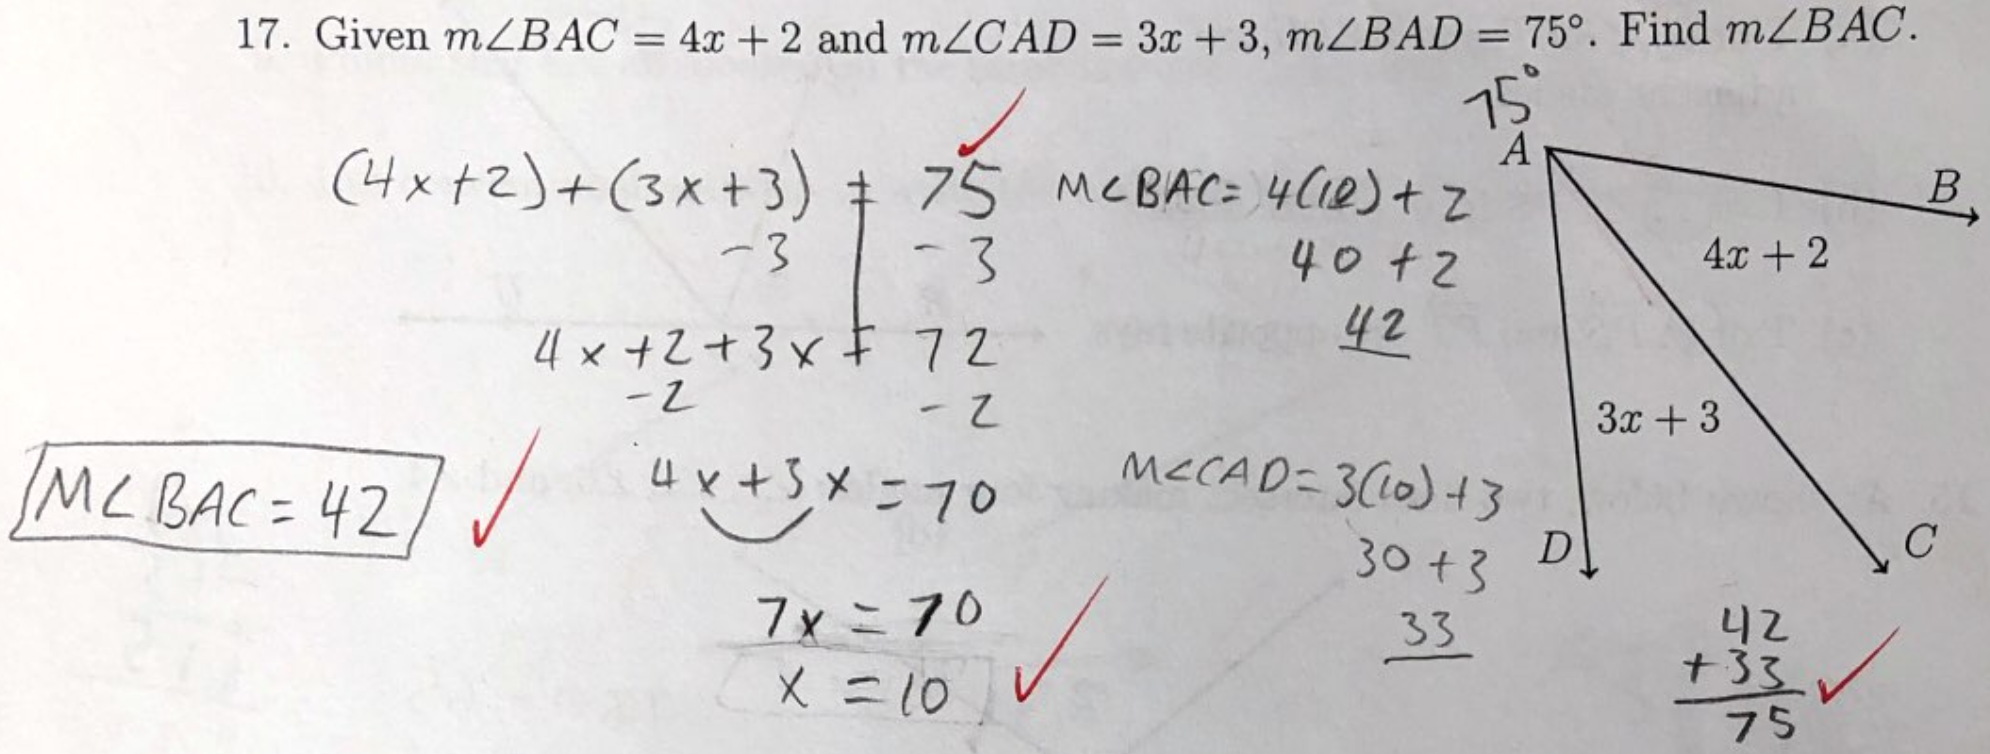 17. Given m∠BAC = 4x + 2 and m∠CAD = 3x + 3, m∠BAD = 75°. Find m∠BAC.
(4x+2)+(3x+3) = 75
-3 -3
4x+2+3x = 72
-2 -2
4x+3x=70
7x = 70
x = 10
M∠BAC = 42
M∠BAC= 4(10)+2
40 +2
42
M∠CAD=3(10)+3
30+3
33
75°
A
B
4x + 2
3x + 3
D
C
42
+33
75